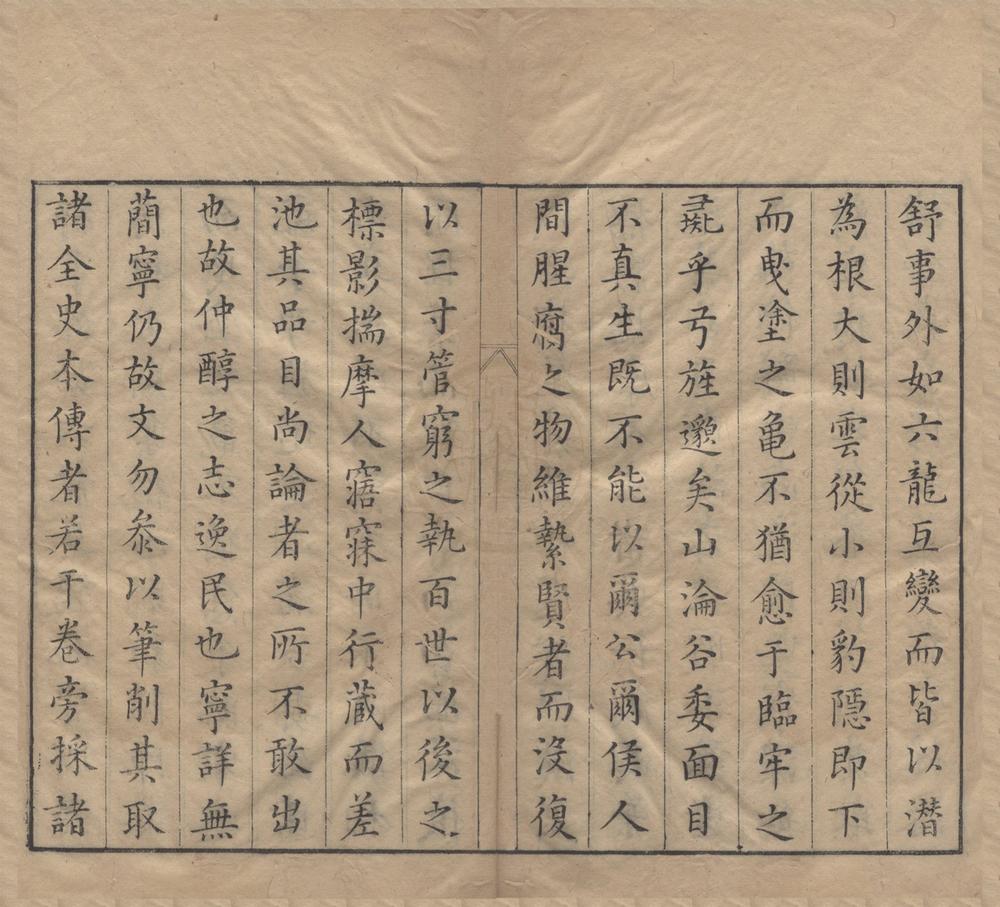 舒事外如六龍互變而皆以潜
為根大則雲從小則豹隱即下
而曳塗之龜不猶愈于臨牢之
彘乎弓旌邈矣山淪谷委面目
不真生既不能以爾公爾侯人
間腥腐之物維縶賢者而沒復
以三寸管窮之執百世以後之
標影揣摩人寤寐中行蔵而差
池其品目尚論者之所不敢出
也故仲醇之志逸民也寧詳無
蕳寧仍故文勿叅以筆削其取
諸全史本傳者若干卷旁採諸